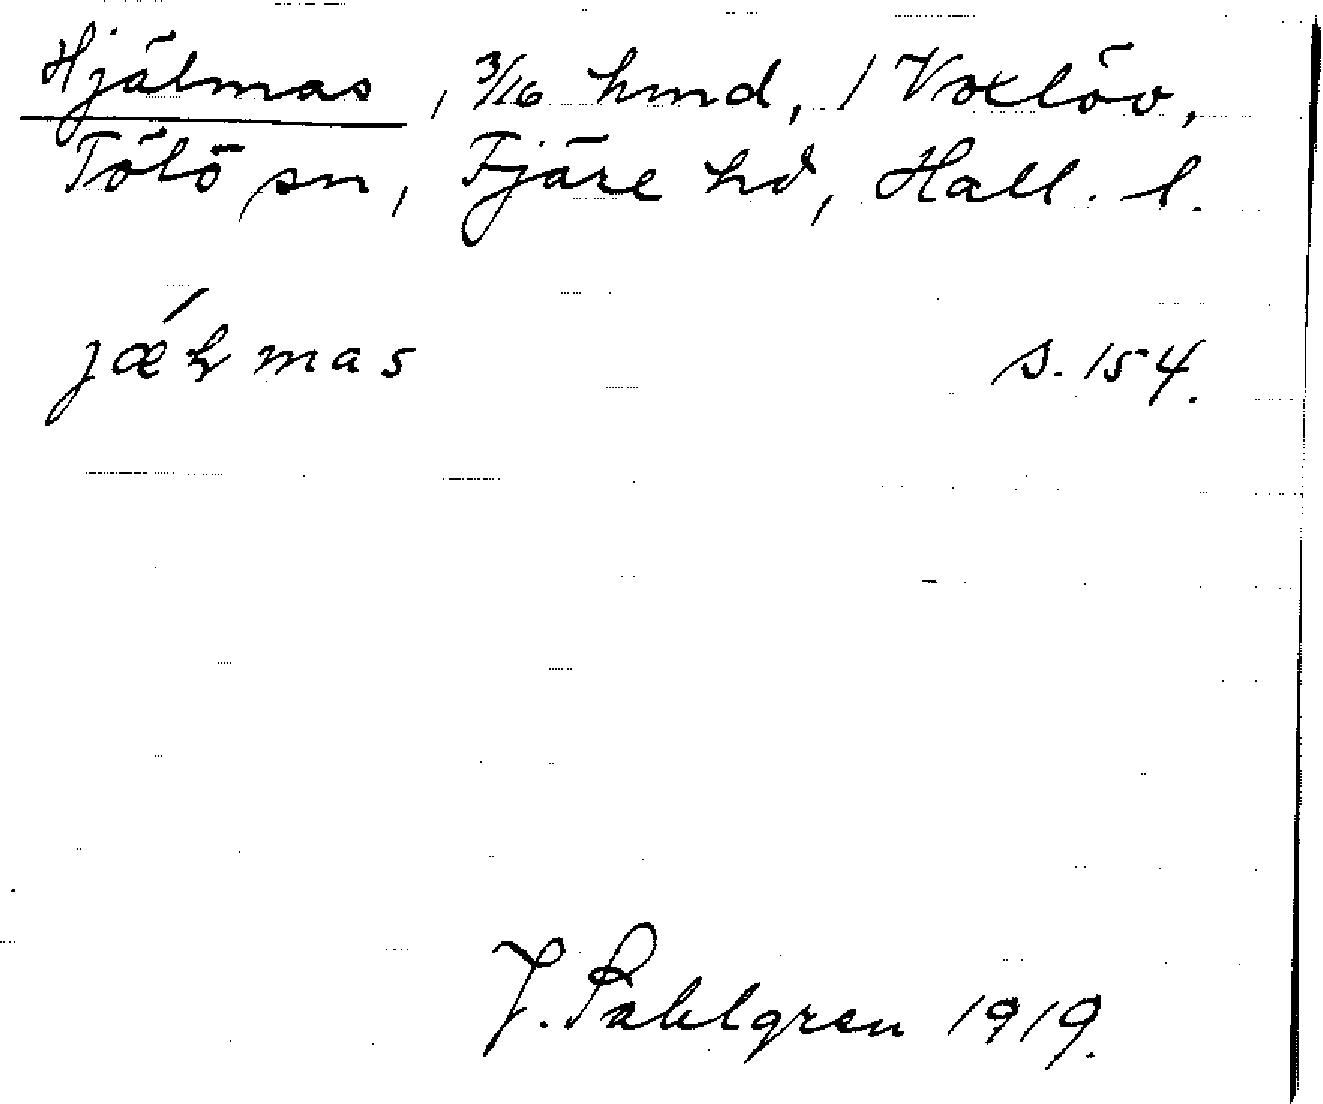 Hjälmas, 3/16 hmd, / Voxlöv,
Tölö sn, Fjäre hd, Hall. l.
jæ̷lmas s. 154.
J. Sahlgren 1919.